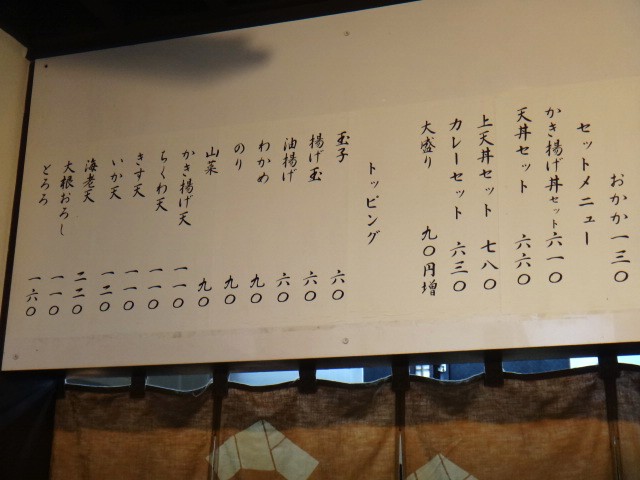 おかか 一三〇
セットメニュー
かき揚げ丼セット 六一〇
天丼セット 六六〇
上天丼セット 七八〇
カレーセット 六三〇
大盛り 九〇円増
トッピング
玉子 六〇
揚げ玉 六〇
油揚げ 六〇
わかめ 九〇
のり 九〇
山菜 九〇
かき揚げ天 一一〇
ちくわ天 一一〇
きす天 一一〇
いか天 一二〇
海老天 二二〇
大根おろし 一一〇
とろろ 一六〇